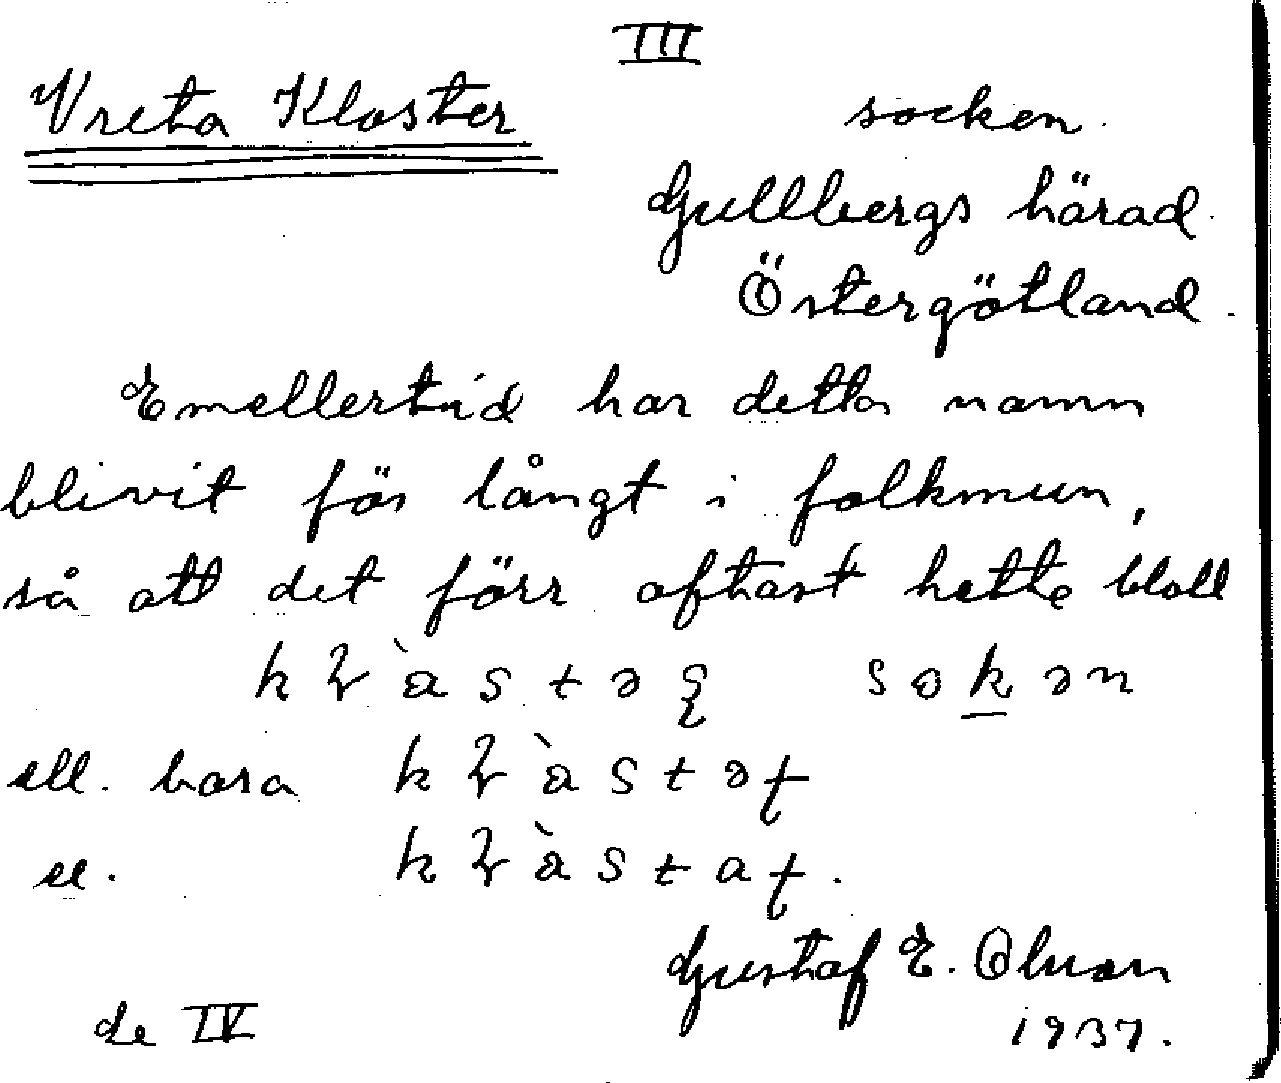 III
Vreta Kloster socken.
Gullbergs härad.
Östergötland.
Emellertid har detta namn
blivit för långt i folkmun,
så att det förr oftast hette blott
sokən
ell. bara
el.
Gustaf E. Olsson
1937.
de IV